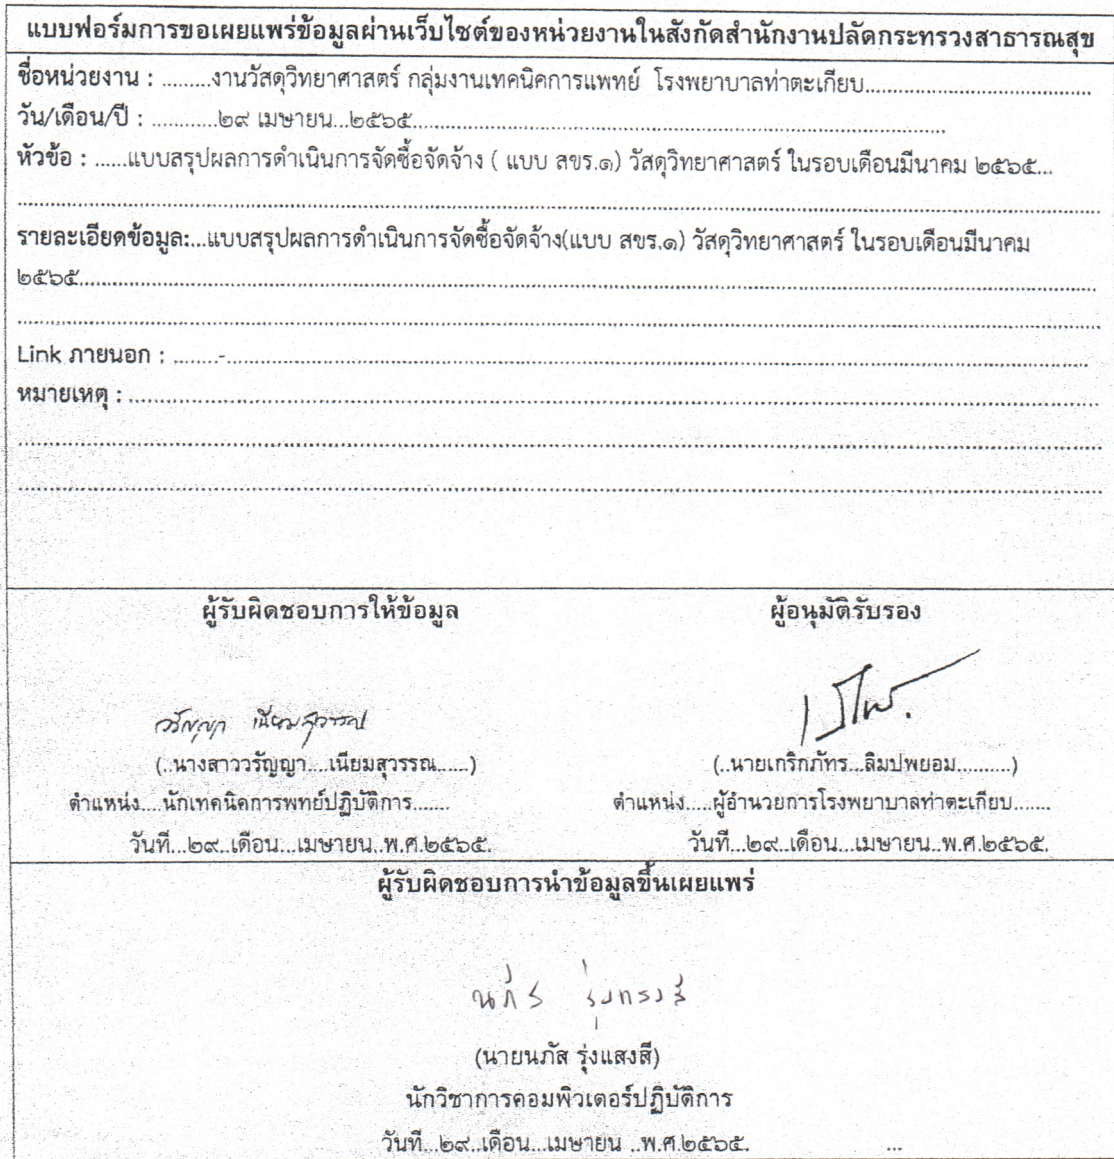 แบบฟอร์มการขอเผยแพร่ข้อมูลผ่านเว็บไซต์ของหน่วยงานในสังกัดสำนักงานปลัดกระทรวงสาธารณสุข
ชื่อหน่วยงาน : .........งานวัสดุวิทยาศาสตร์ กลุ่มงานเทคนิคการแพทย์ โรงพยาบาลท่าตะเกียบ.............................................
วัน/เดือน/ปี : ............๒๙ เมษายน...๒๕๖๕..............................................................
หัวข้อ : ......แบบสรุปผลการดำเนินการจัดซื้อจัดจ้าง ( แบบ สขร.๑) วัสดุวิทยาศาสตร์ ในรอบเดือนมีนาคม ๒๕๖๕...
รายละเอียดข้อมูล:...แบบสรุปผลการดำเนินการจัดซื้อจัดจ้าง(แบบ สขร.๑) วัสดุวิทยาศาสตร์ ในรอบเดือนมีนาคม
๒๕๖๕..............................................................
Link ภายนอก : ........-..............................................................
หมายเหตุ : ..............................................................
ผู้รับผิดชอบการให้ข้อมูล ผู้อนุมัติรับรอง
วรัญญา เนียมสุวรรณ
(..นางสาววรัญญา....เนียมสุวรรณ......) (..นายเกริกภัทร...ลิมปพยอม..........)
ตำแหน่ง....นักเทคนิคการพทย์ปฏิบัติการ....... ตำแหน่ง.....ผู้อำนวยการโรงพยาบาลท่าตะเกียบ.......
วันที่...๒๙..เดือน...เมษายน..พ.ศ.๒๕๖๕. วันที่...๒๙..เดือน...เมษายน..พ.ศ.๒๕๖๕.
ผู้รับผิดชอบการนำข้อมูลขึ้นเผยแพร่
นภัส รุ่งแสงสี
(นายนภัส รุ่งแสงสี)
นักวิชาการคอมพิวเตอร์ปฏิบัติการ
วันที่...๒๙..เดือน...เมษายน ..พ.ศ.๒๕๖๕. ...